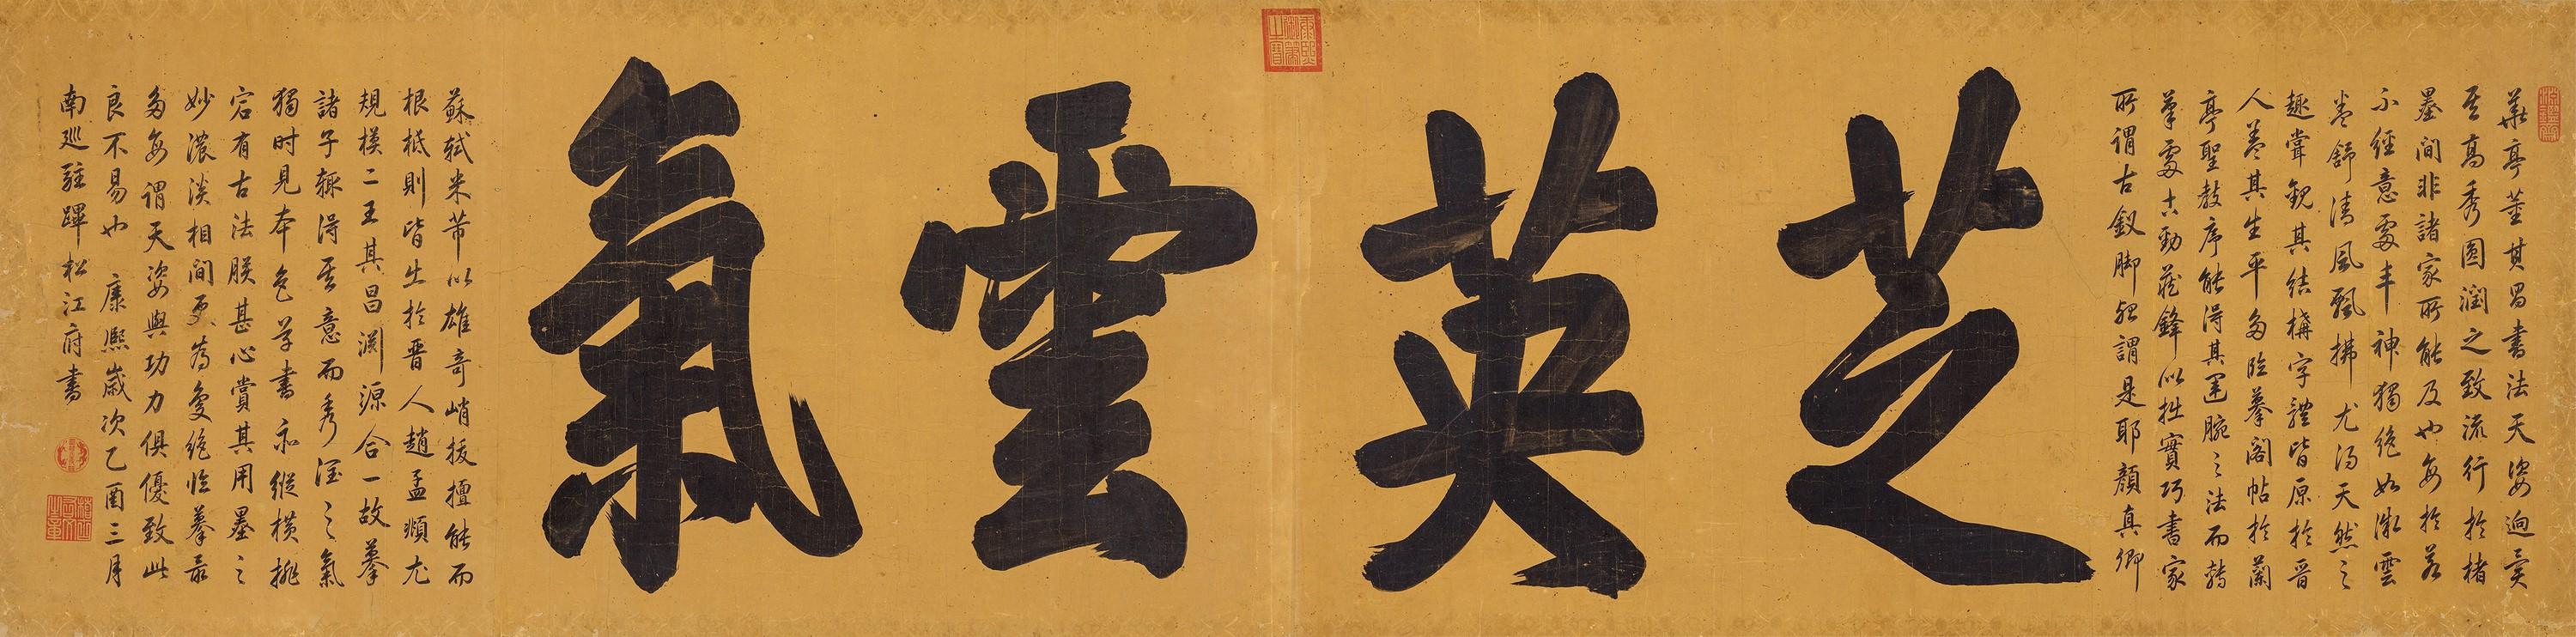 華亭董其昌書法天姿迥異
其高秀圓潤之致流行於楮
墨間非諸家所能及也每於若
不經意處丰神獨絕如微雲
卷舒清風飄拂尤得天然之
趣嘗觀其結構字體皆原於晉
人蓋其生平多臨摹閣帖於蘭
亭聖教序能得其運腕之法而轉
筆處古勁藏鋒似拙實巧書家
所謂古釵脚殆謂是耶顏真卿
芝英雲氣
蘇軾米芾以雄奇峭拔擅能而
根柢則皆生於晉人趙孟頫尤
規模二王其昌淵源合一故摹
諸子輒得其意而秀潤之氣
獨時見本色草書亦縱橫排
宕有古法朕甚心賞其用墨之
妙濃淡相間更為夐絕臨摹最
多每謂天姿與功力俱優致此
良不易也 康熙歲次乙酉三月
南巡駐蹕松江府書
康熙御筆之寶
淵鑒齋